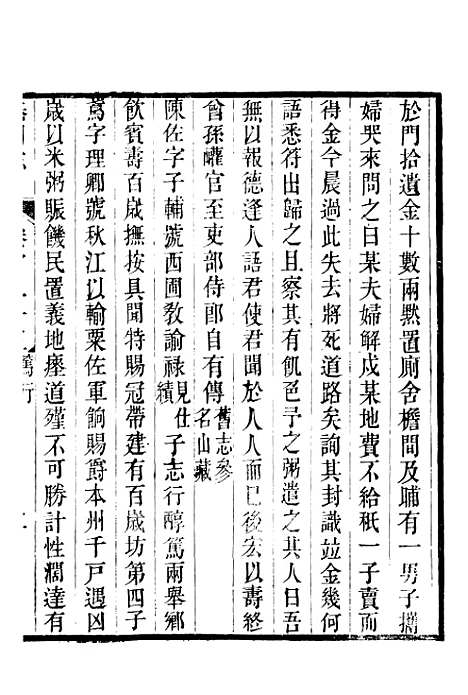 於門拾遺金十數兩黙置廁舍檐間及晡有一男子攜
婦哭來問之曰某夫婦解戍某地費不給秪一子賣而
得金今晨過此失去將死道路矣詢其封識竝金幾何
語悉符出歸之且察其有飢色予之粥遣之其人曰吾
無以報德逢人語君使君聞於人人而已後宏以壽終
曾孫讙官至吏部侍郎自有傳舊志參名山藏
陳佐字子輔號西圃敎諭祿見仕績子志行醇篤兩舉鄉
飲賓壽百歲撫按具聞特賜冠帶建有百歲坊第四子
蔿字理卿號秋江以輸粟佐軍餉賜爵本州千戸遇凶
歲以米粥賑饑民置義地瘞道殣不可勝計性濶達有
篤行